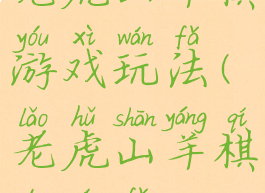 yóu xì wán fǎ
游戏玩法(
lǎo hǔ shān yáng qí
老虎山羊棋